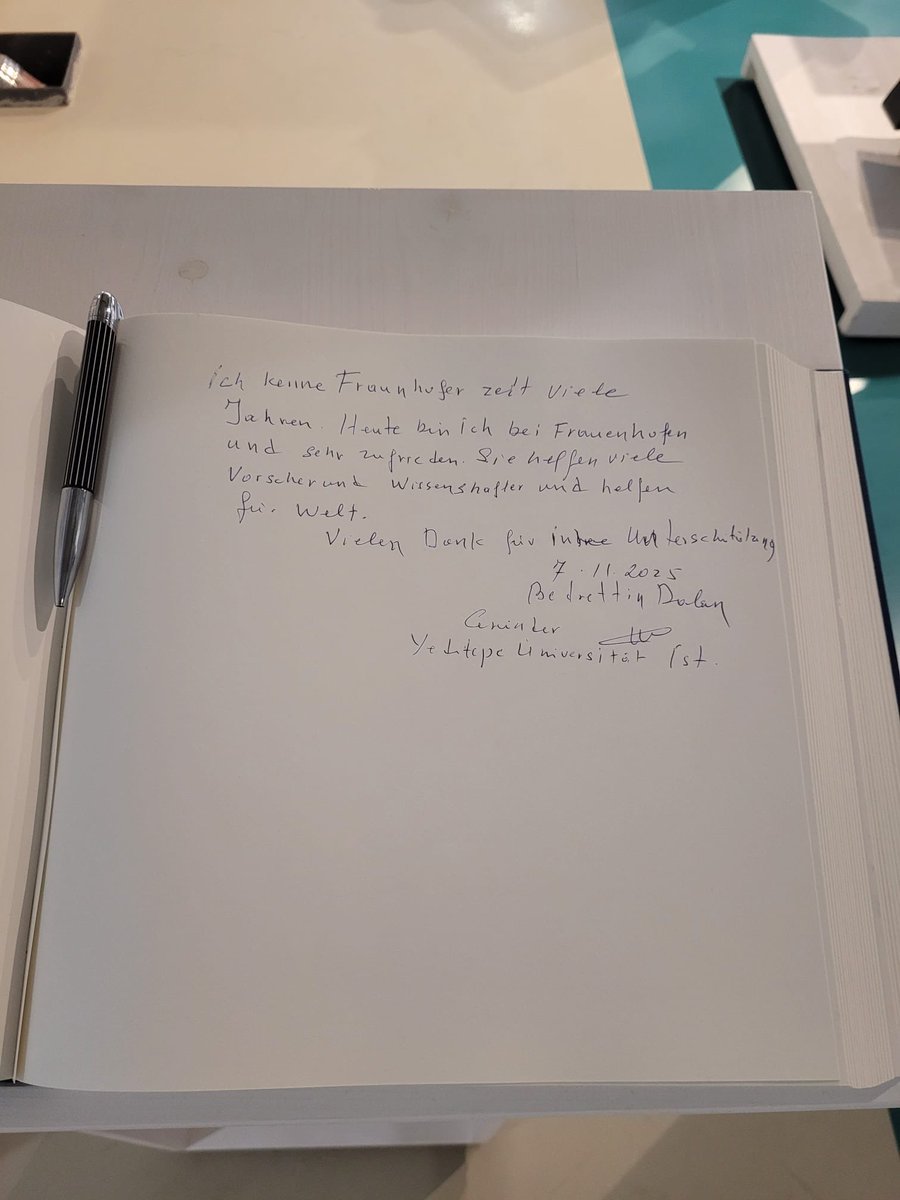 ich kenne Fraunhofer zeit viele
Jahren. Heute bin Ich bei Frauenhofen
und sehr zufrieden. Sie helfen viele
Vorscher und Wissenshafter und helfen
für Welt.
Vielen Dank für Unterschützung
7.11.2025
Bedrettin Dalan
Yeditepe Universität Ist.